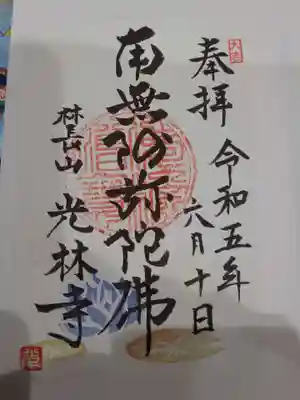 奉拝
令和五年
六月十日
南無阿弥陀佛
林長山
光林寺